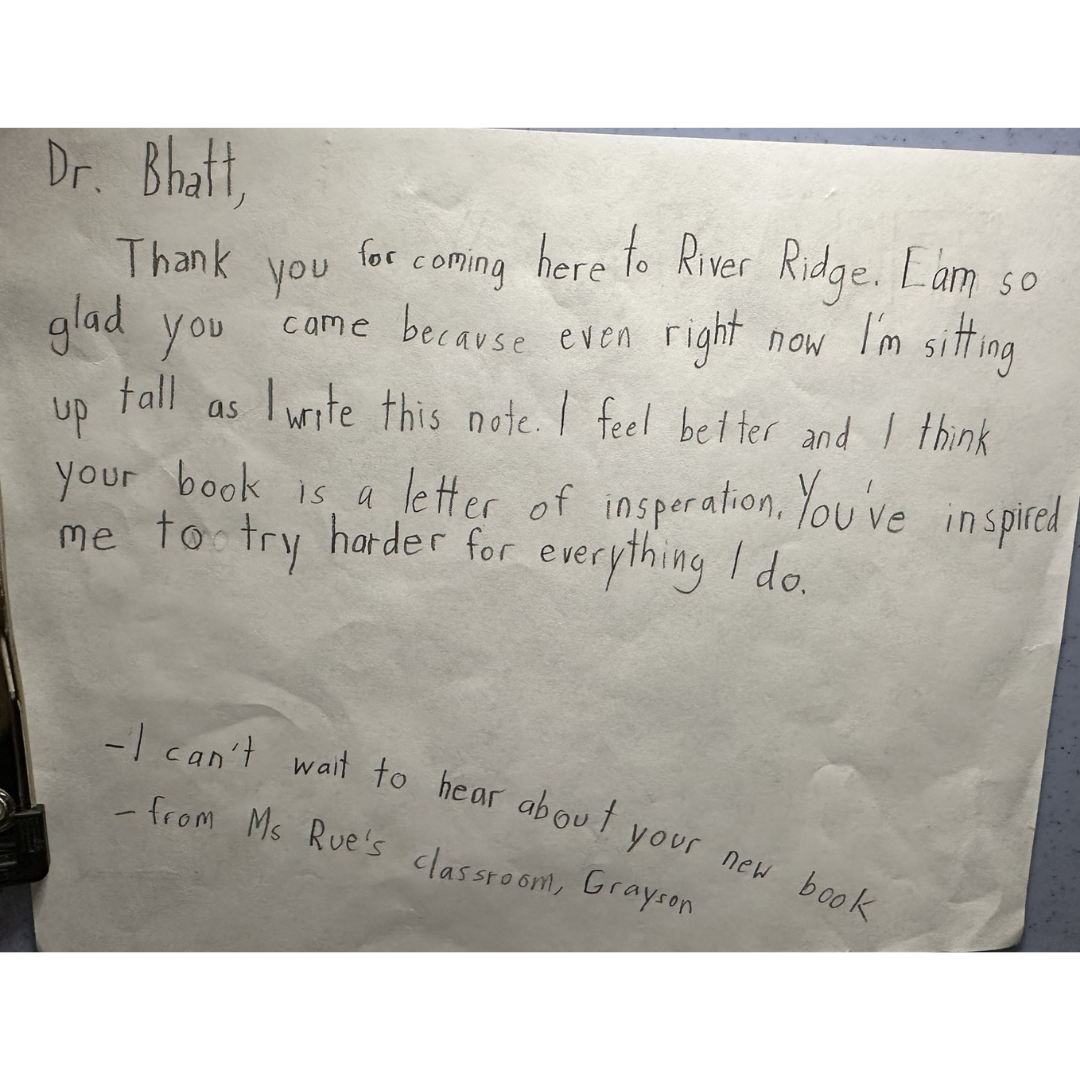 Dr. Bhatt,
Thank you for coming here to River Ridge. I am so
glad you came because even right now I'm sitting
up tall as I write this note. I feel better and I think
your book is a letter of insperation. You've inspired
me to try harder for everything I do.
-I can't wait to hear about your new book
-from Ms Rue's classroom, Grayson